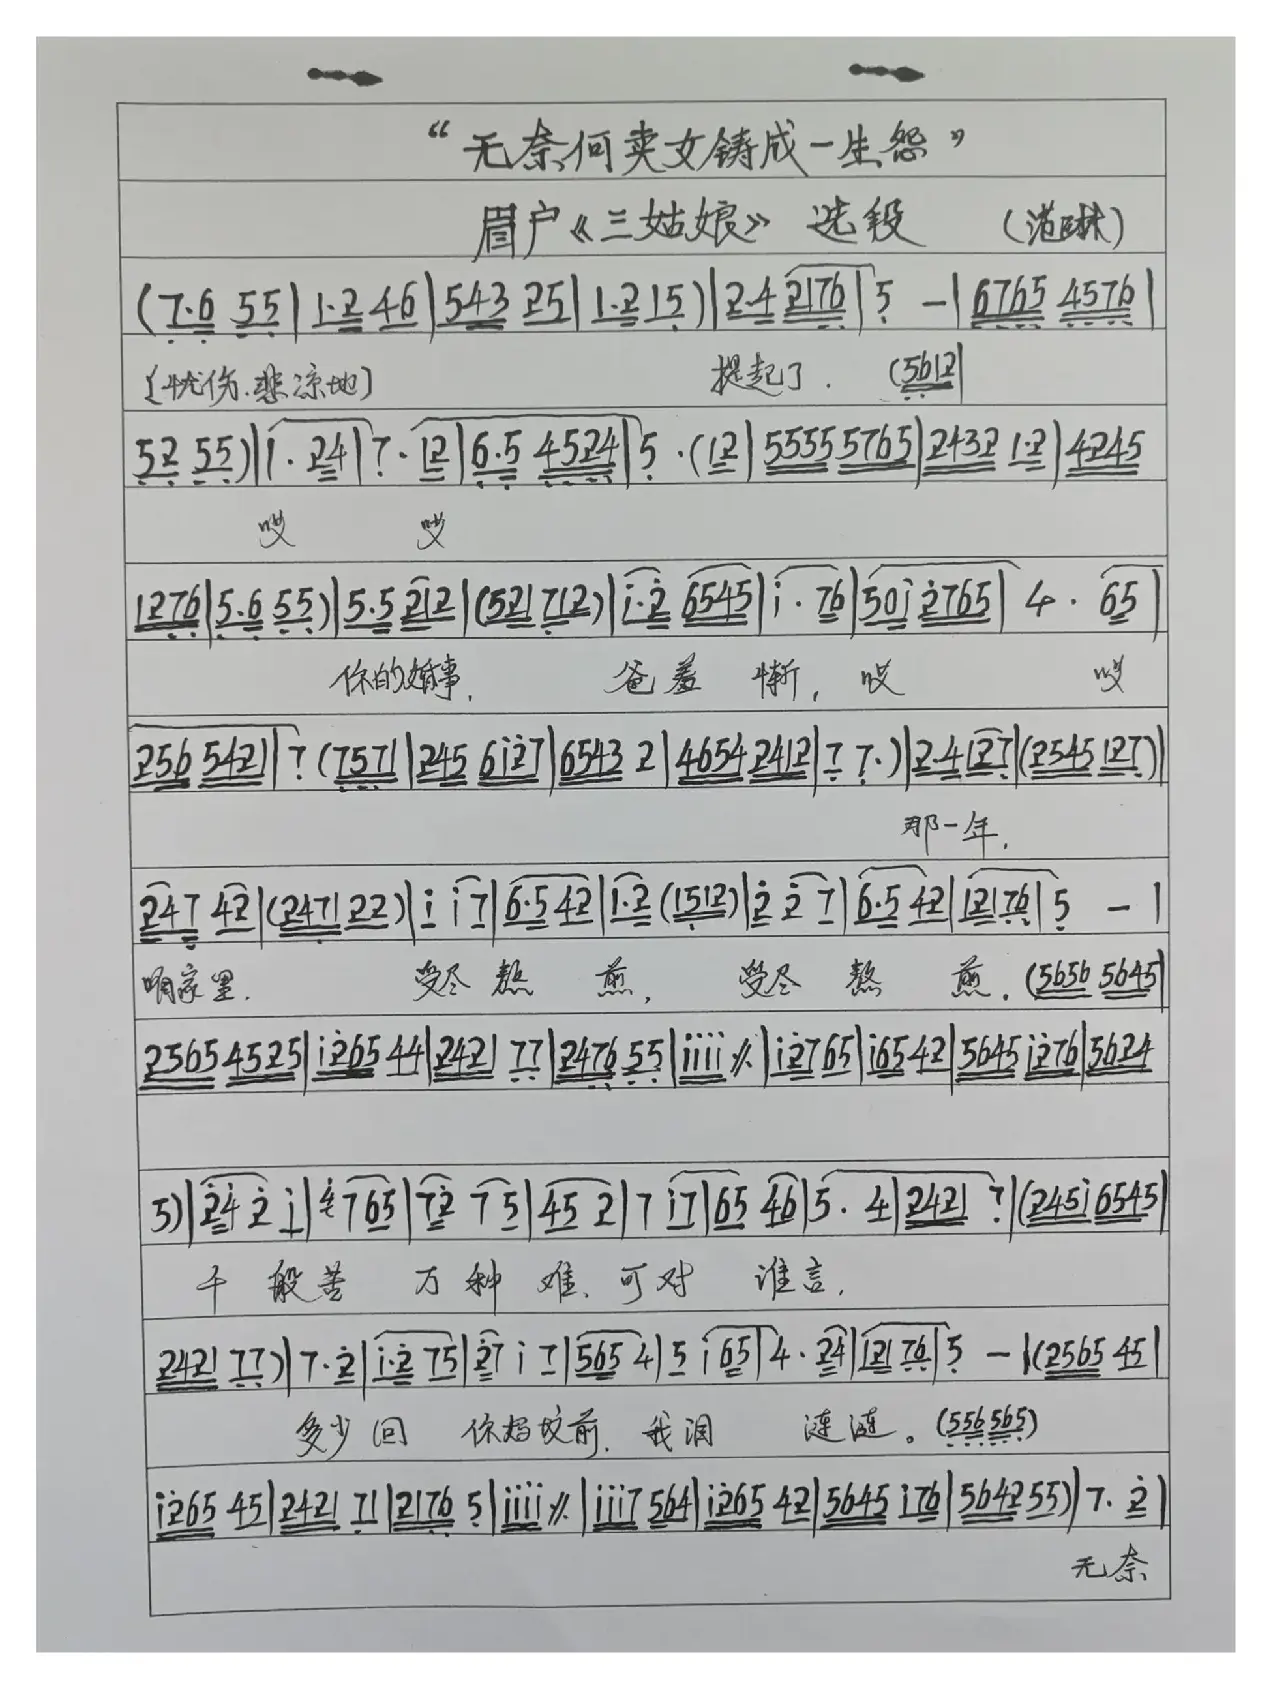 “无奈何卖女铸成一生怨”
眉户《三姑娘》 选段 (范琳)
(7·6 55|1·2 46|543 25|1·2 15)|2·4 2176|5 -|6765 4576|
[忧伤.悲凉地] 提起了. (5612|
52 55)|1·24|7·12|6·5 4524|5·(12|5555 5765|2432 1·2|4245
哎 哎
1276|5·6 55)|5·5 212|(521 712)|i·2 6545|i·76|50i 2765|4·65|
你的婚事, 爸羞惭, 哎 哎
256 5421|7(7571|245 6i27|6543 2|4654 2412|7 7·)|2·4 127|(2545 127)|
那一年.
247 42|(2471 22)|i i7|6·5 42|1·2 (1512)|2 27|6·5 42|12176|5 -|
咱家里. 受尽熬煎, 受尽熬煎. (5656 5645|
2565 4525|i265 44|2421 77|2476 55|iiii //.|i2765|i65 42|5645 i276|5624
5)|24 2 i|765|72 75|45 2|7 i7|65 46|5·4|2421 7|(245i 6545|
千般苦 万种难. 可对谁言.
2421 77)|7·2|i·2 75|27 i 7|565 4|5 i65|4·24|12176|5 -|(2565 45|
多少回 你妈坟前. 我泪涟涟。(556 565)
i265 45|2421 71|2176 5|iiii //.|iii7 564|i265 42|5645 i76|5642 55)|7·2|
无奈